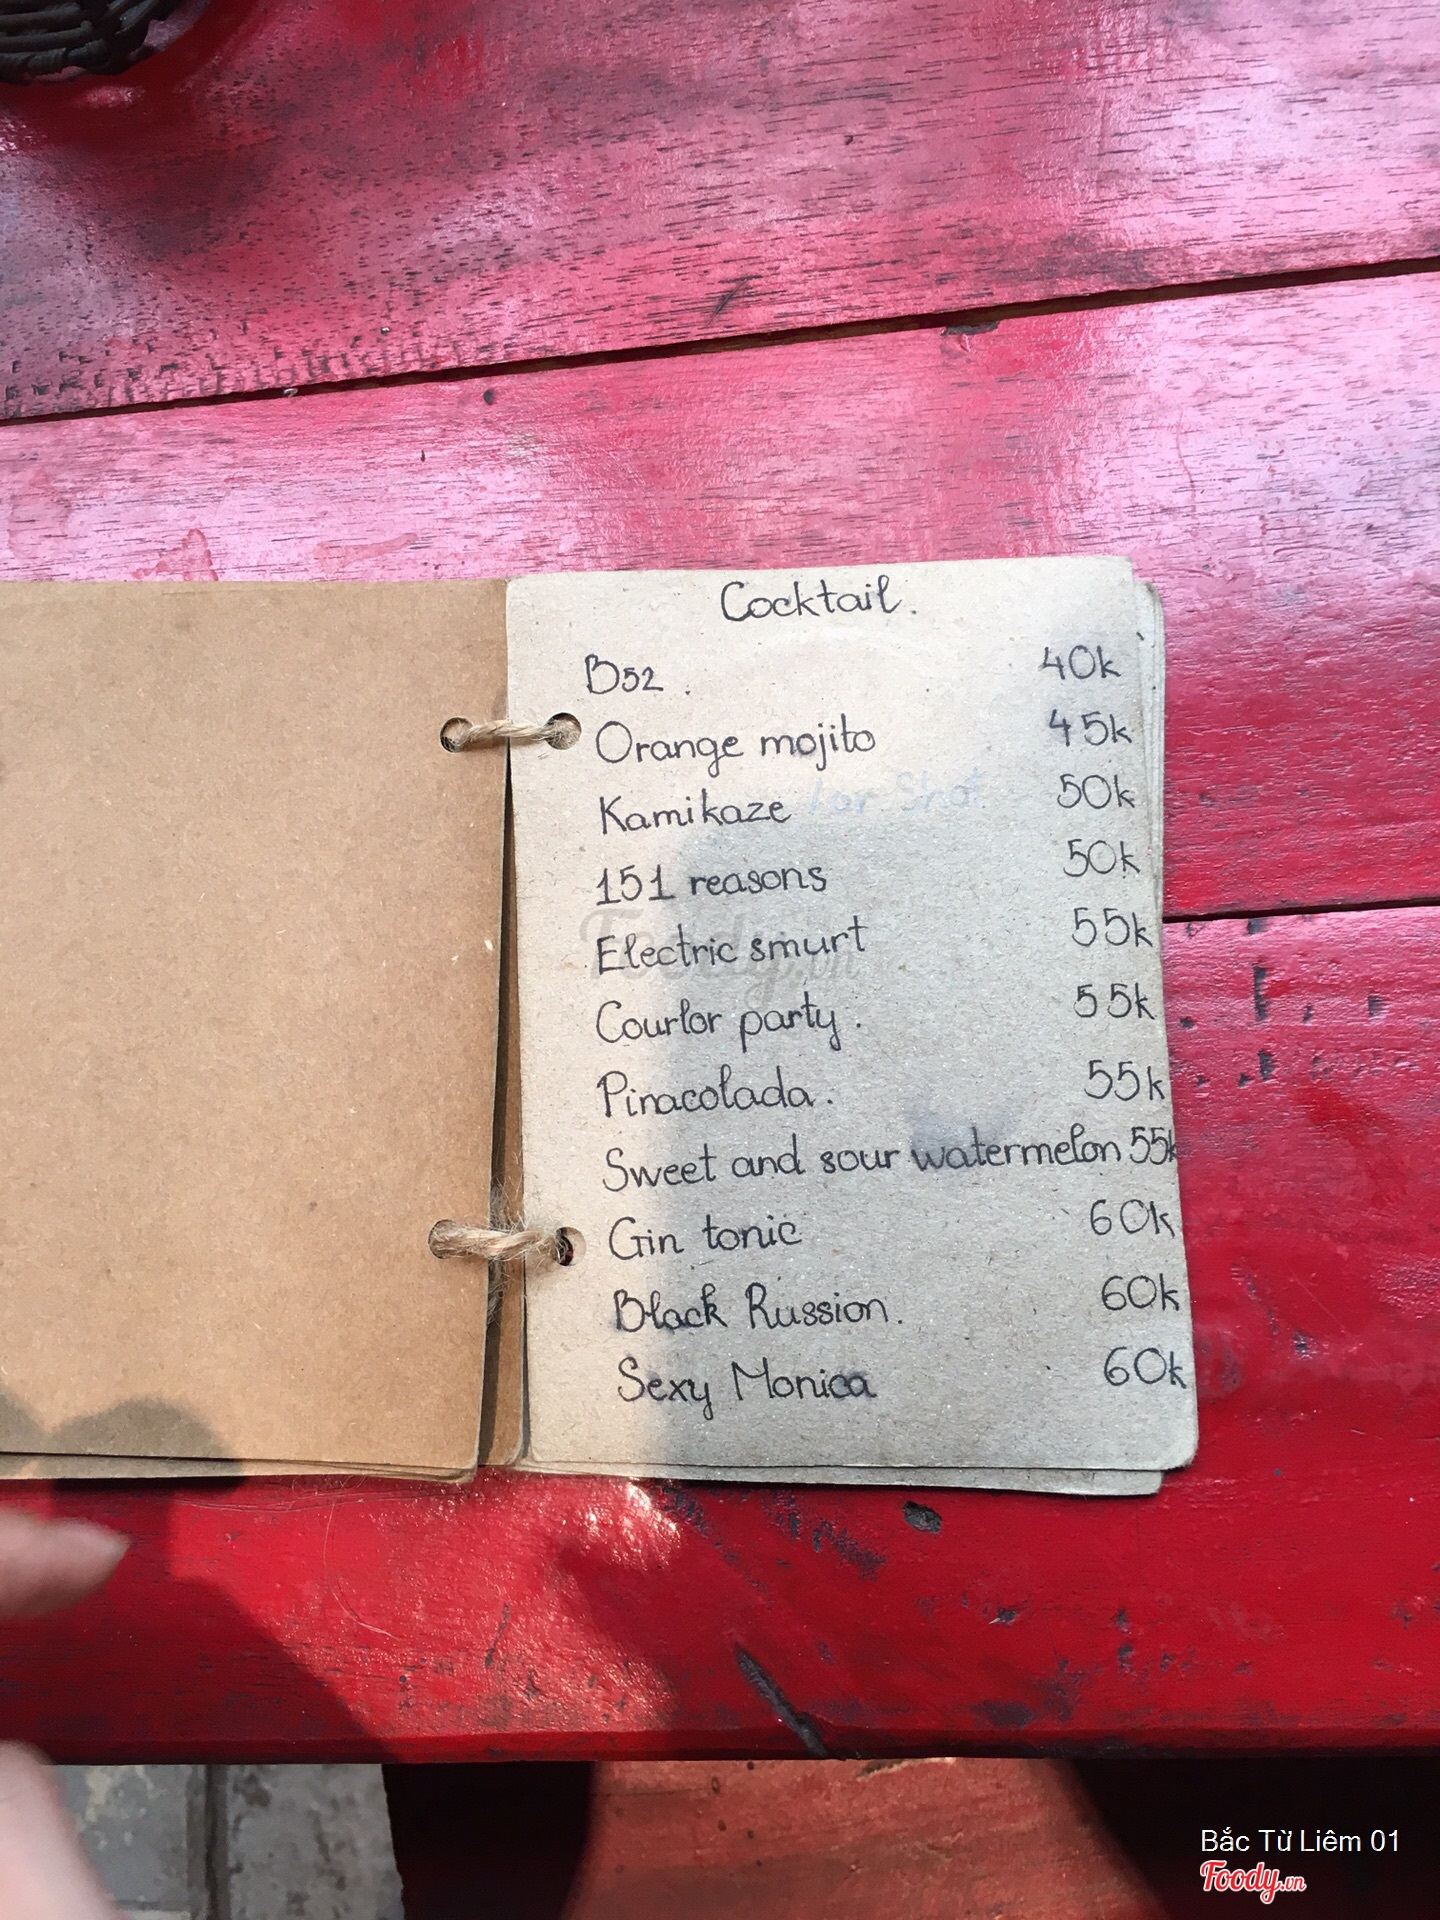 Cocktail.
B52. 40k
Orange mojito 45k
Kamikaze / or Shot 50k
151 reasons 50k
Electric smurt 55k
Courlor party. 55k
Pinacolada. 55k
Sweet and sour watermelon 55k
Gin tonic 60k
Black Russion. 60k
Sexy Monica 60k
Foody.vn
Bắc Từ Liêm 01
Foody.vn